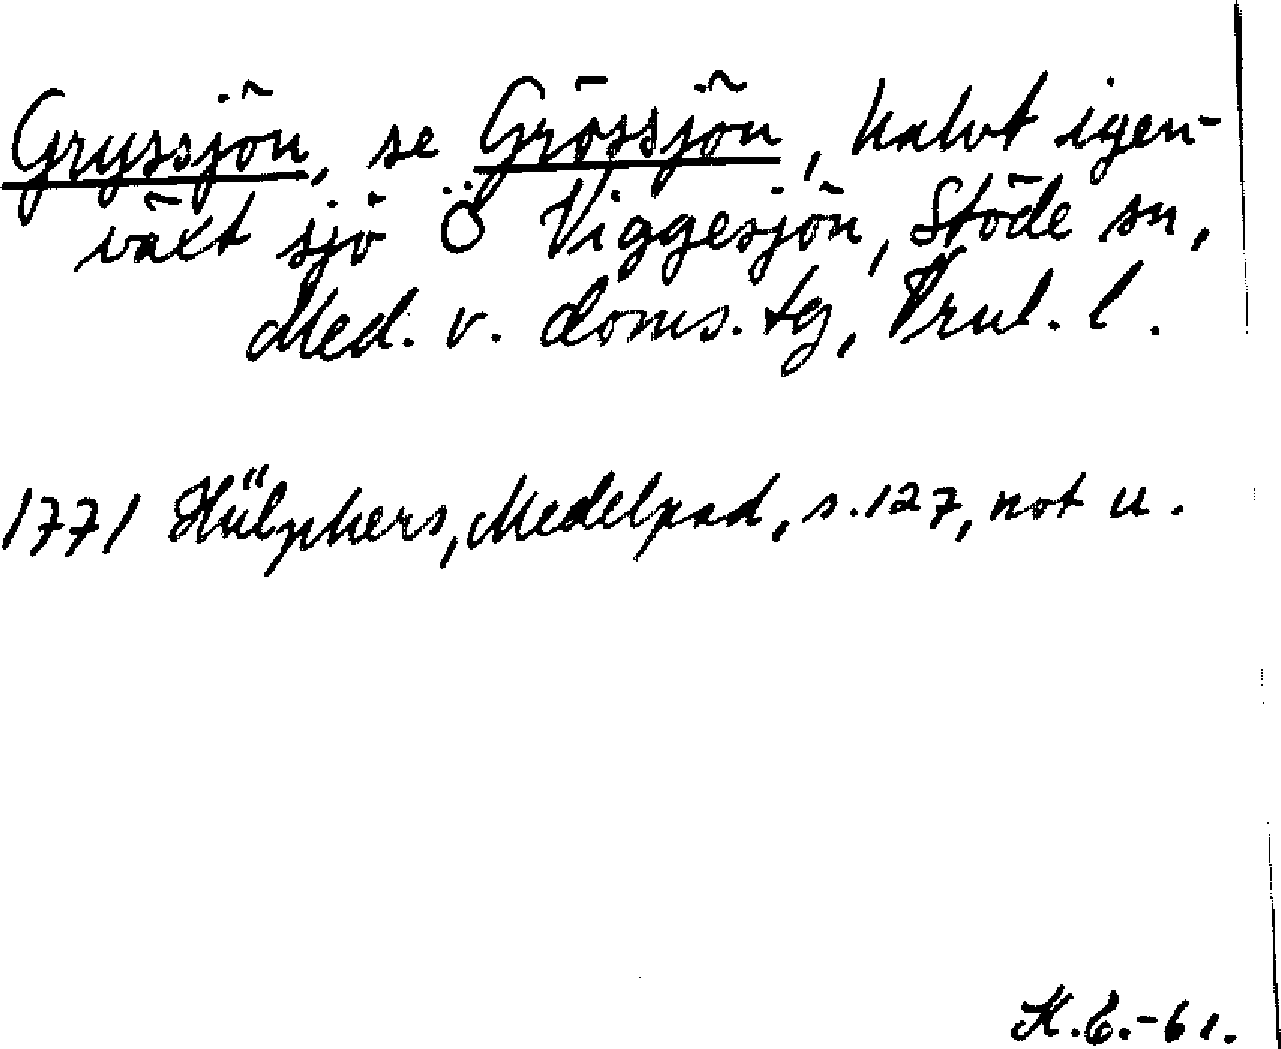 Gryssjön, se Grössjön, halvt igen-
växt sjö Ö Viggesjön, Stöde sn,
Med. v. doms. tg, Vrnl. l.
1771 Hülphers, Medelpad, s. 127, not u.
K.E.-61.